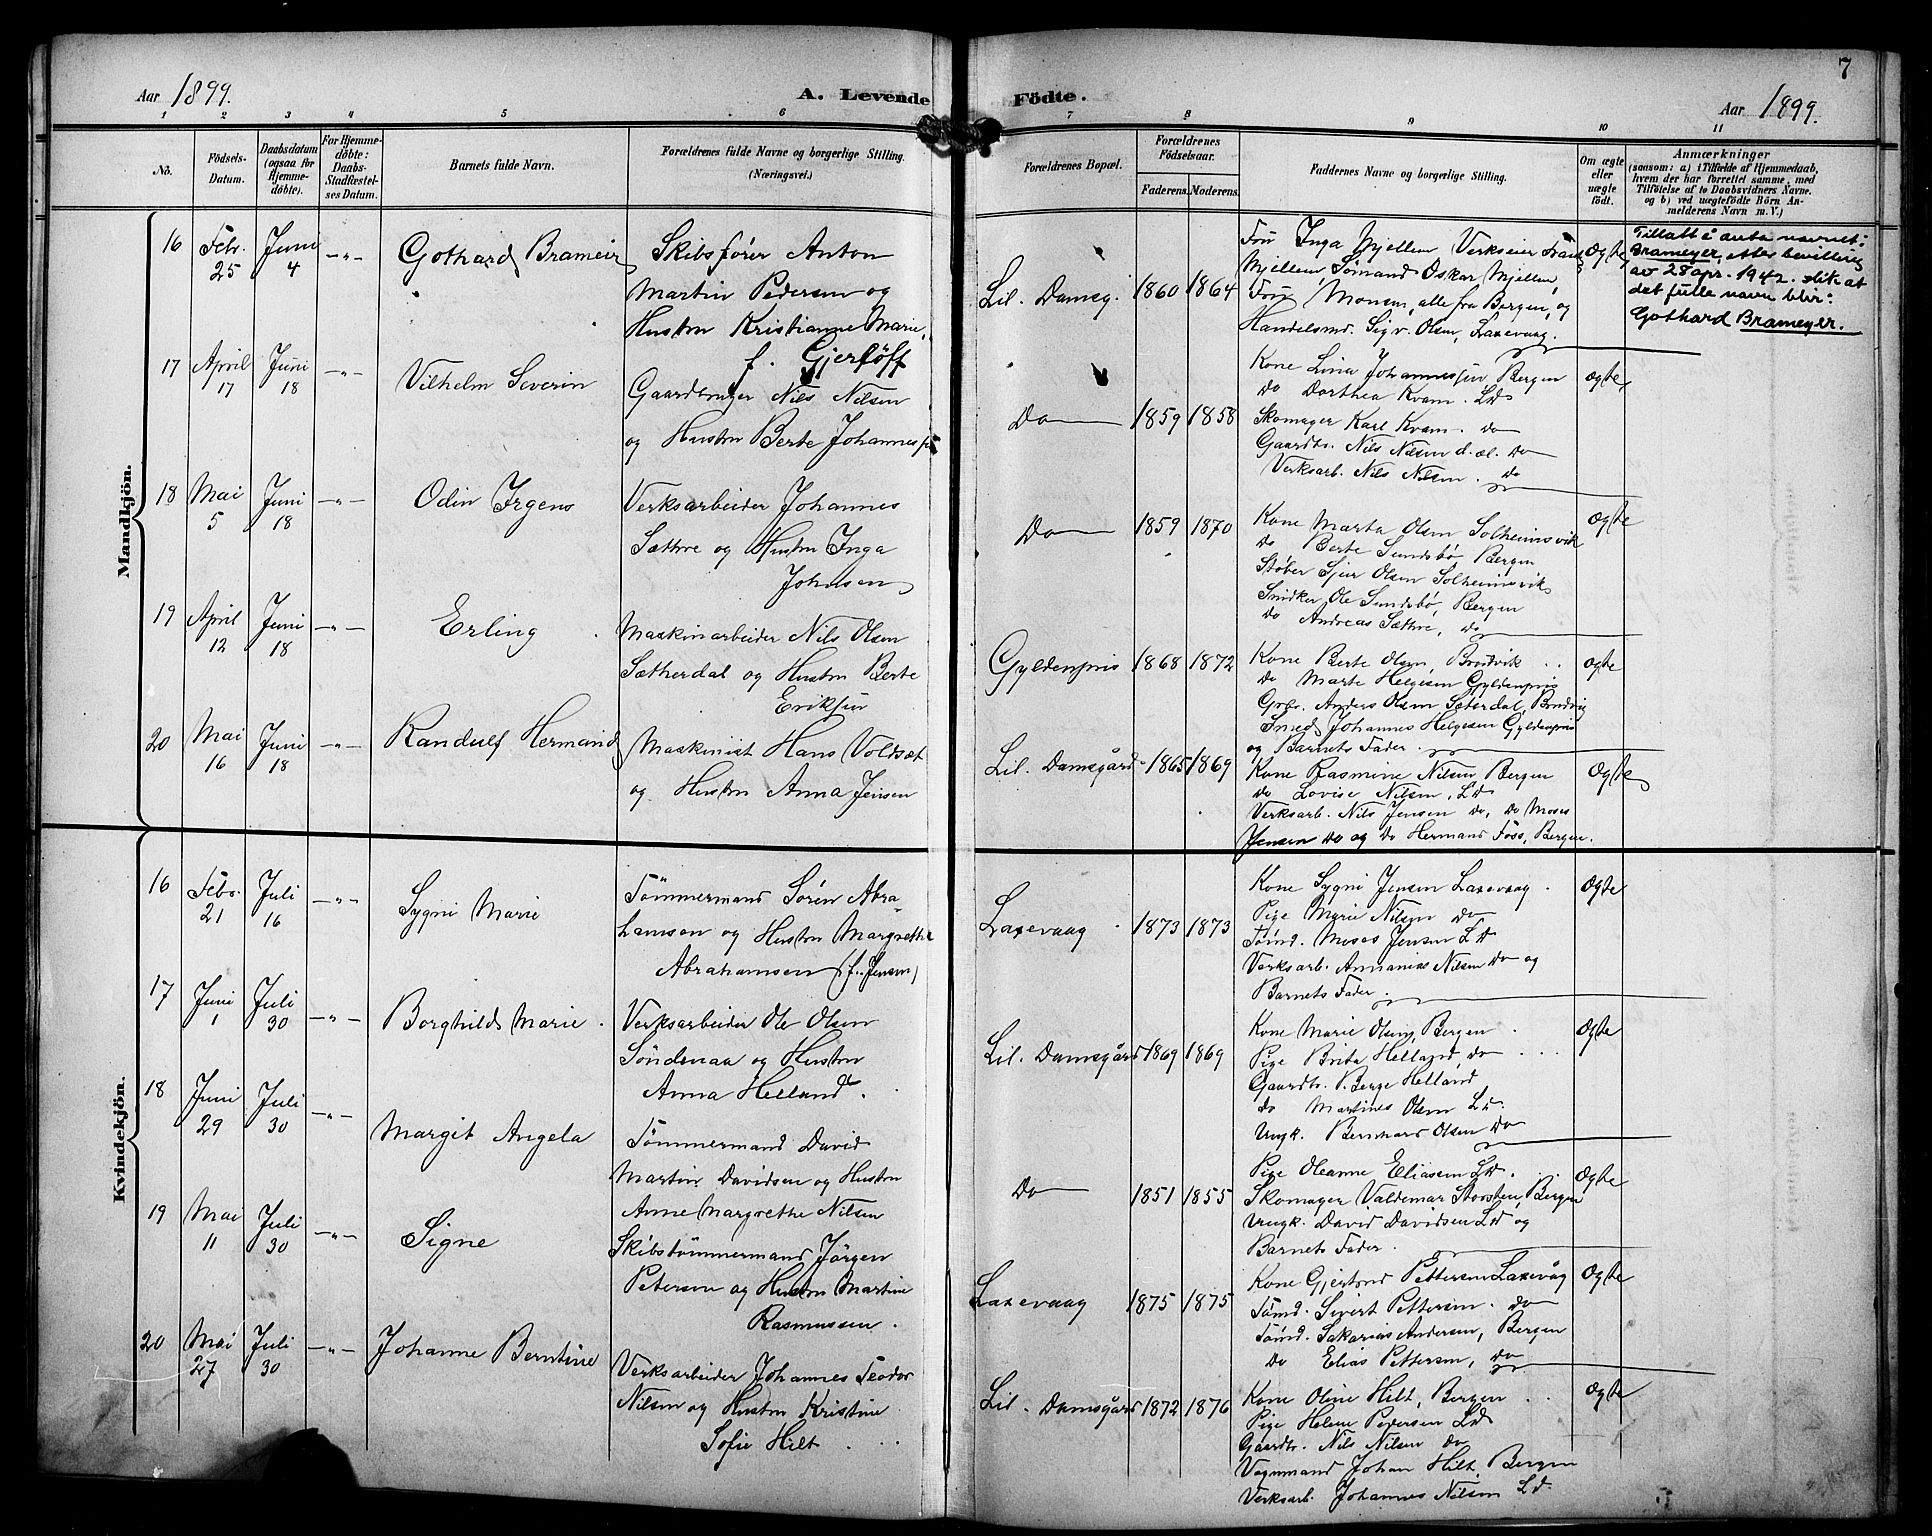 7
Aar 1899.
A. Levende Födte.
Aar 1899.
1 2 3 4 5 6 7 8 9 10 11
No.
Födsels-
Datum.
Daabsdatum
(ogsaa for
Hjemme-
döbte).
For Hjemme-
döbte:
Daabs-
Stadfæstel-
ses Datum.
Barnets fulde Navn.
Forældrenes fulde Navne og borgerlige Stilling.
(Næringsvei.)
Forældrenes Bopæl.
Forældrenes
Födselsaar.
Faderens. Moderens.
Faddernes Navne og borgerlige Stilling.
Om ægte
eller
uægte
födt.
Anmærkninger
(saasom: a) i Tilfælde af Hjemmedaab,
hvem der har forrettet samme, med
Tilföielse af to Daabsvidners Navne.
og b) ved uægtefödte Börn An-
melderens Navn m. V.)
Mandkjön.
16
Febr.
25
Juni
4
-"-
Gothard Brameir
Skibsfører Anton
Martin Pedersen og
Hustru Kristianne Marie,
f. Gjerløff
Lil. Damsg.
1860 1864
Fru Inga Mjellem Verkseier Frantz
Mjellem, Sømand Oskar Mjellem,
Fru Monsen, alle fra Bergen, og
Handelsmd. Sigv. Olsen, Laxevaag.
Ogte
Tillatt å anta navnet:
Brameyer, etter bevilling
av 28 apr. 1942. slik at
det fulle navn blir:
Gothard Brameyer.
17
April
17
Juni
18
-"-
Vilhelm Severin
Gaardbruger Nils Nilsen
og Hustru Berte Johannes
Do
1859 1858
Kone Lina Johannessen Bergen
do Dorthea Kvam. Ld
Skomager Karl Kvam. do
Gaardbr. Nils Nilsen d. æl. do
Verksarb. Nils Nilsen. do
ogte
18
Mai
5
Juni
18
-"-
Odin Irgens
Verksarbeider Johannes
Sæthre og Hustru Inga
Johnsen
Do
1859 1870
Kone Marta Olsen Solheimsvik
do Berte Sundsbø Bergen
Støber Sjur Olsen Solheimsvik
Snidker Ole Sundsbø, Bergen
do Andreas Sæthre, do
Ogte
19
April
12
Juni
18
-"-
Erling
Maskinarbeider Nils Olsen
Sætherdal og Hustru Berte
Eriksen
Gyldenpris
1868 1872
Kone Berte Olsen, Brudvik
do Marte Helgesen Gyldenpris
Gbr. Anders Olsen Sæterdal, Brudvig
Smed Johannes Helgesen Gyldenpris
og Barnets Fader.
ogte
20
Mai
16
Juni
18
-"-
Randulf Hermand
Maskinist Hans Voldsæt
og Hustru Anna Jensen
Lil. Damsgård
1865 1869
Kone Rasmine Nilsen Bergen
do Lovise Nilsen, Ld
Verksarb. Nils Jensen do, do Moses
Jensen do og do Hermand Foss, Bergen.
Ogte
Kvindekjön.
16
Febr.
21
Juli
16
-"-
Sygni Marie
Tømmermand Søren Abra-
hamsen og Hustru Margrethe
Abrahamsen (f. Jensen)
Laxevaag
1873 1873
Kone Sygni Jensen Laxevaag.
Pige Marie Nilsen do
Tømd. Moses Jensen Ld
Verksarb. Annanias Nilsen do og
Barnets Fader.
ogte
17
Juni
1
Juli
30
-"-
Borghild Marie.
Verksarbeider Ole Olsen
Søndenaa og Hustru
Anna Helland.
Lil. Damsgård
1869 1869
Kone Marie Olsen, Bergen
Pige Brita Helland do
Gaardbr. Berge Helland
do Martines Olsen Ld.
Ungk. Bernhard Olsen do
Ogte
18
Juni
29
Juli
30
-"-
Margit Angela
Tømmermand David
Martin Davidsen og Hustru
Anne Margrethe Nilsen
Do
1851 1855
Pige Oleanne Eliasen Ld.
Skomager Valdemar Storsten, Bergen
Ungk. David Davidsen Ld og
Barnets Fader.
Ogte
19
Mai
11
Juli
30
-"-
Signe
Skibstømmermand Jørgen
Petersen og Hustru Martine
Rasmussen.
Laxevaag
1875 1875
Kone Gjertrud Pettersen Laxevåg
Tømd. Sivert Pettersen. do
Tømd. Sakarias Andersen, Bergen
Do Elias Pettersen, do
Ogte
20
Mai
27
Juli
30
-"-
Johanne Berntine
Verksarbeider Johannes Teodor
Nilsen og Hustru Kristine
Sofie Hilt.
Lil. Damsgård
1872 1876
Kone Oline Hilt, Bergen
Pige Helene Pedersen Ld
Gaardbr. Nils Nilsen do
Vognmand Johan Hilt, Bergen
Verksarb. Johannes Nilsen Ld.
Ogte